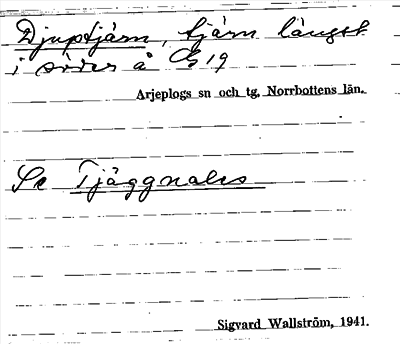 Djuptjärn, tjärn längst
i söder å Eg 19
Arjeplogs sn och tg, Norrbottens län.
Se Tjäggnales
Sigvard Wallström, 1941.